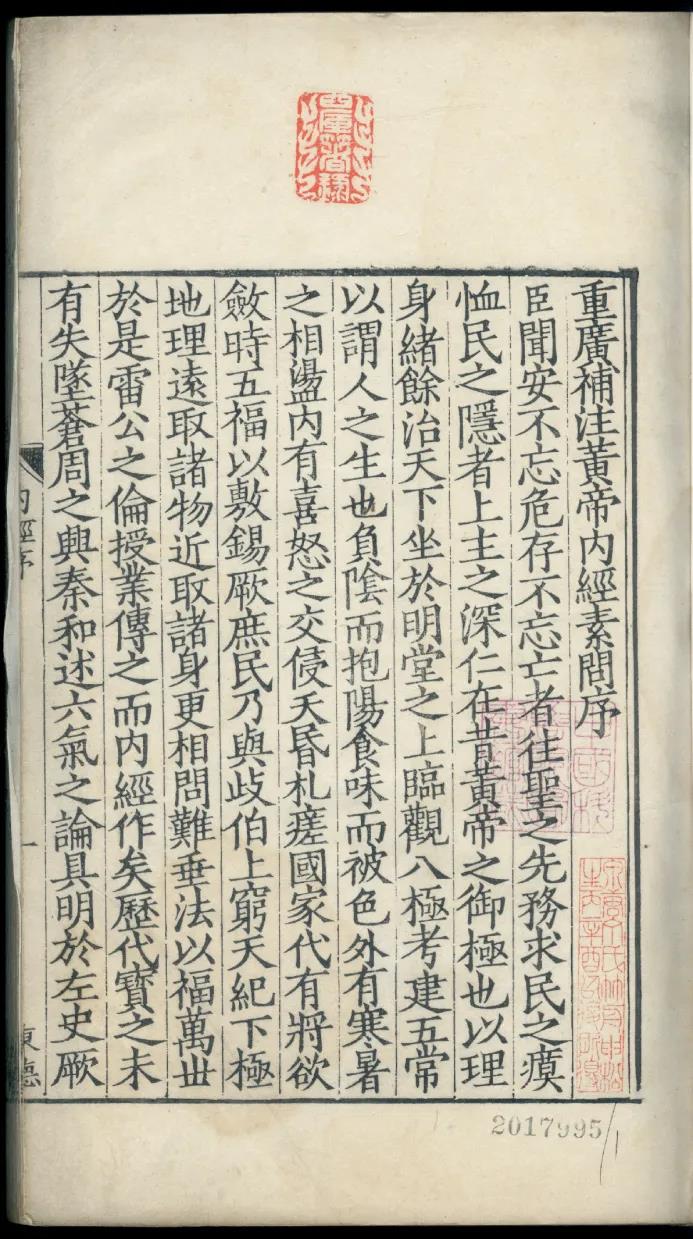 重廣補注黃帝內經素問序
臣聞安不忘危存不忘亡者往聖之先務求民之瘼
恤民之隱者上主之深仁在昔黃帝之御極也以理
身緒餘治天下坐於明堂之上臨觀八極考建五常
以謂人之生也負陰而抱陽食味而被色外有寒暑
之相盪內有喜怒之交侵夭昏札瘥國家代有將欲
斂時五福以敷錫厥庶民乃與歧伯上窮天紀下極
地理遠取諸物近取諸身更相問難垂法以福萬世
於是雷公之倫授業傳之而內經作矣歷代寶之未
有失墜蒼周之興秦和述六氣之論具明於左史厥
內經序
一
2017995/1